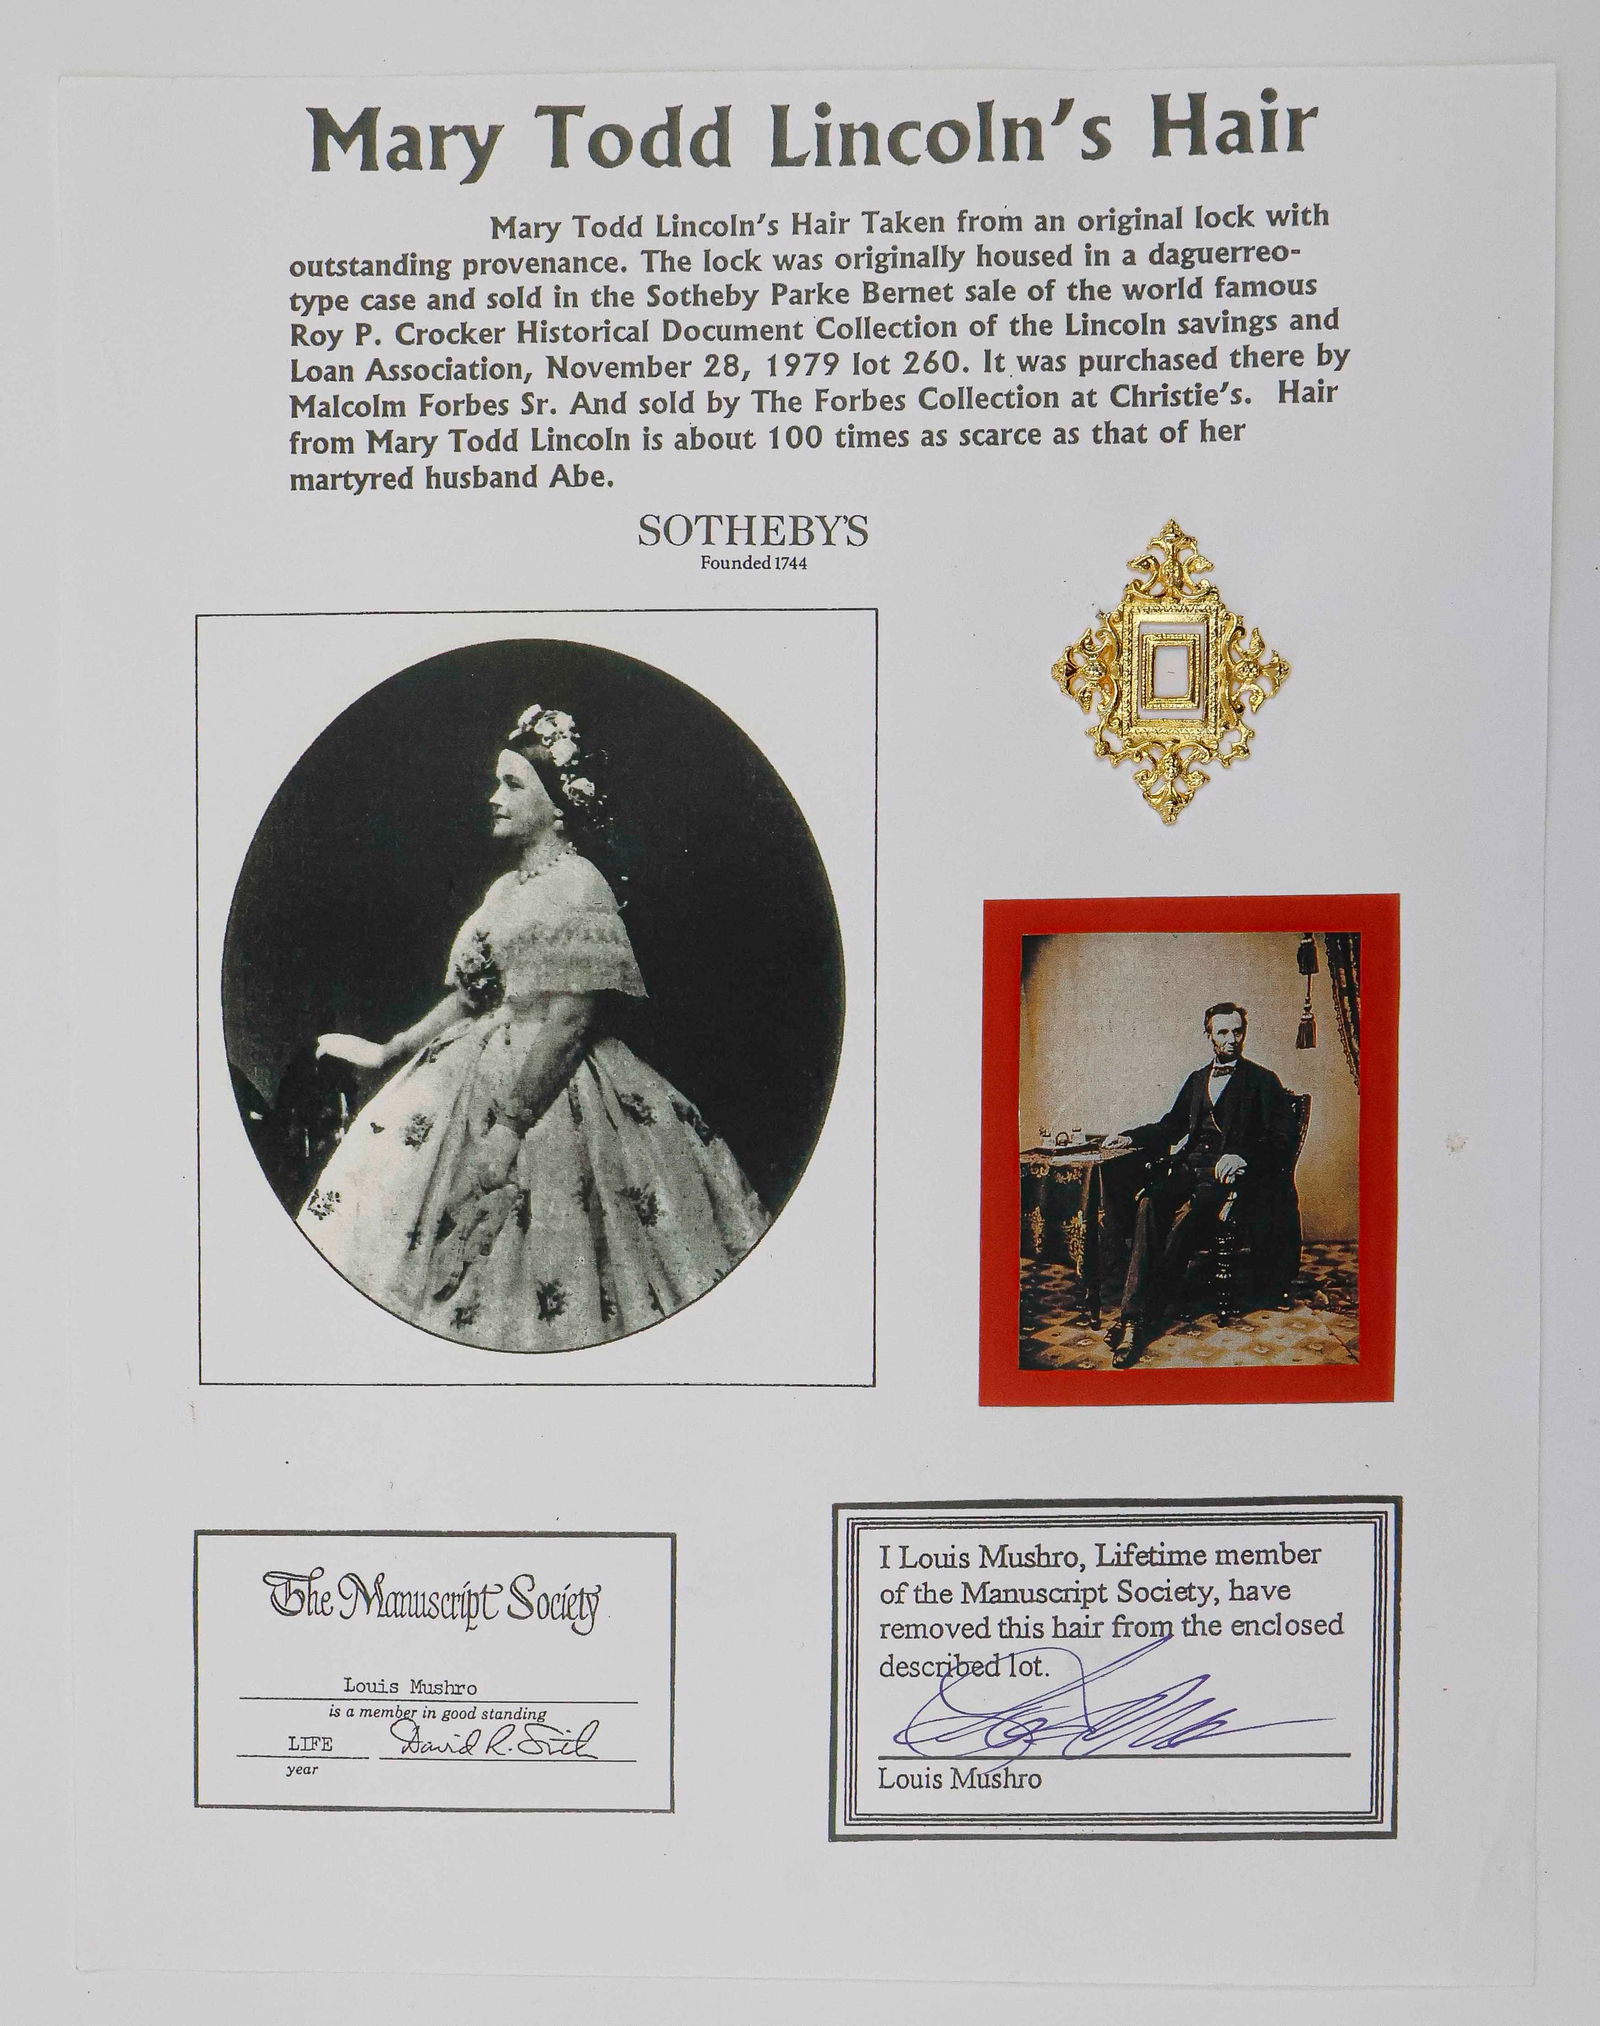 Mary Todd Lincoln's Hair
Mary Todd Lincoln's Hair Taken from an original lock with
outstanding provenance. The lock was originally housed in a daguerreo-
type case and sold in the Sotheby Parke Bernet sale of the world famous
Roy P. Crocker Historical Document Collection of the Lincoln savings and
Loan Association, November 28, 1979 lot 260. It was purchased there by
Malcolm Forbes Sr. And sold by The Forbes Collection at Christie's. Hair
from Mary Todd Lincoln is about 100 times as scarce as that of her
martyred husband Abe.
SOTHEBY'S
Founded 1744
The Manuscript Society
Louis Mushro
is a member in good standing
LIFE David R.
year
I Louis Mushro, Lifetime member
of the Manuscript Society, have
removed this hair from the enclosed
described lot.
Louis Mushro